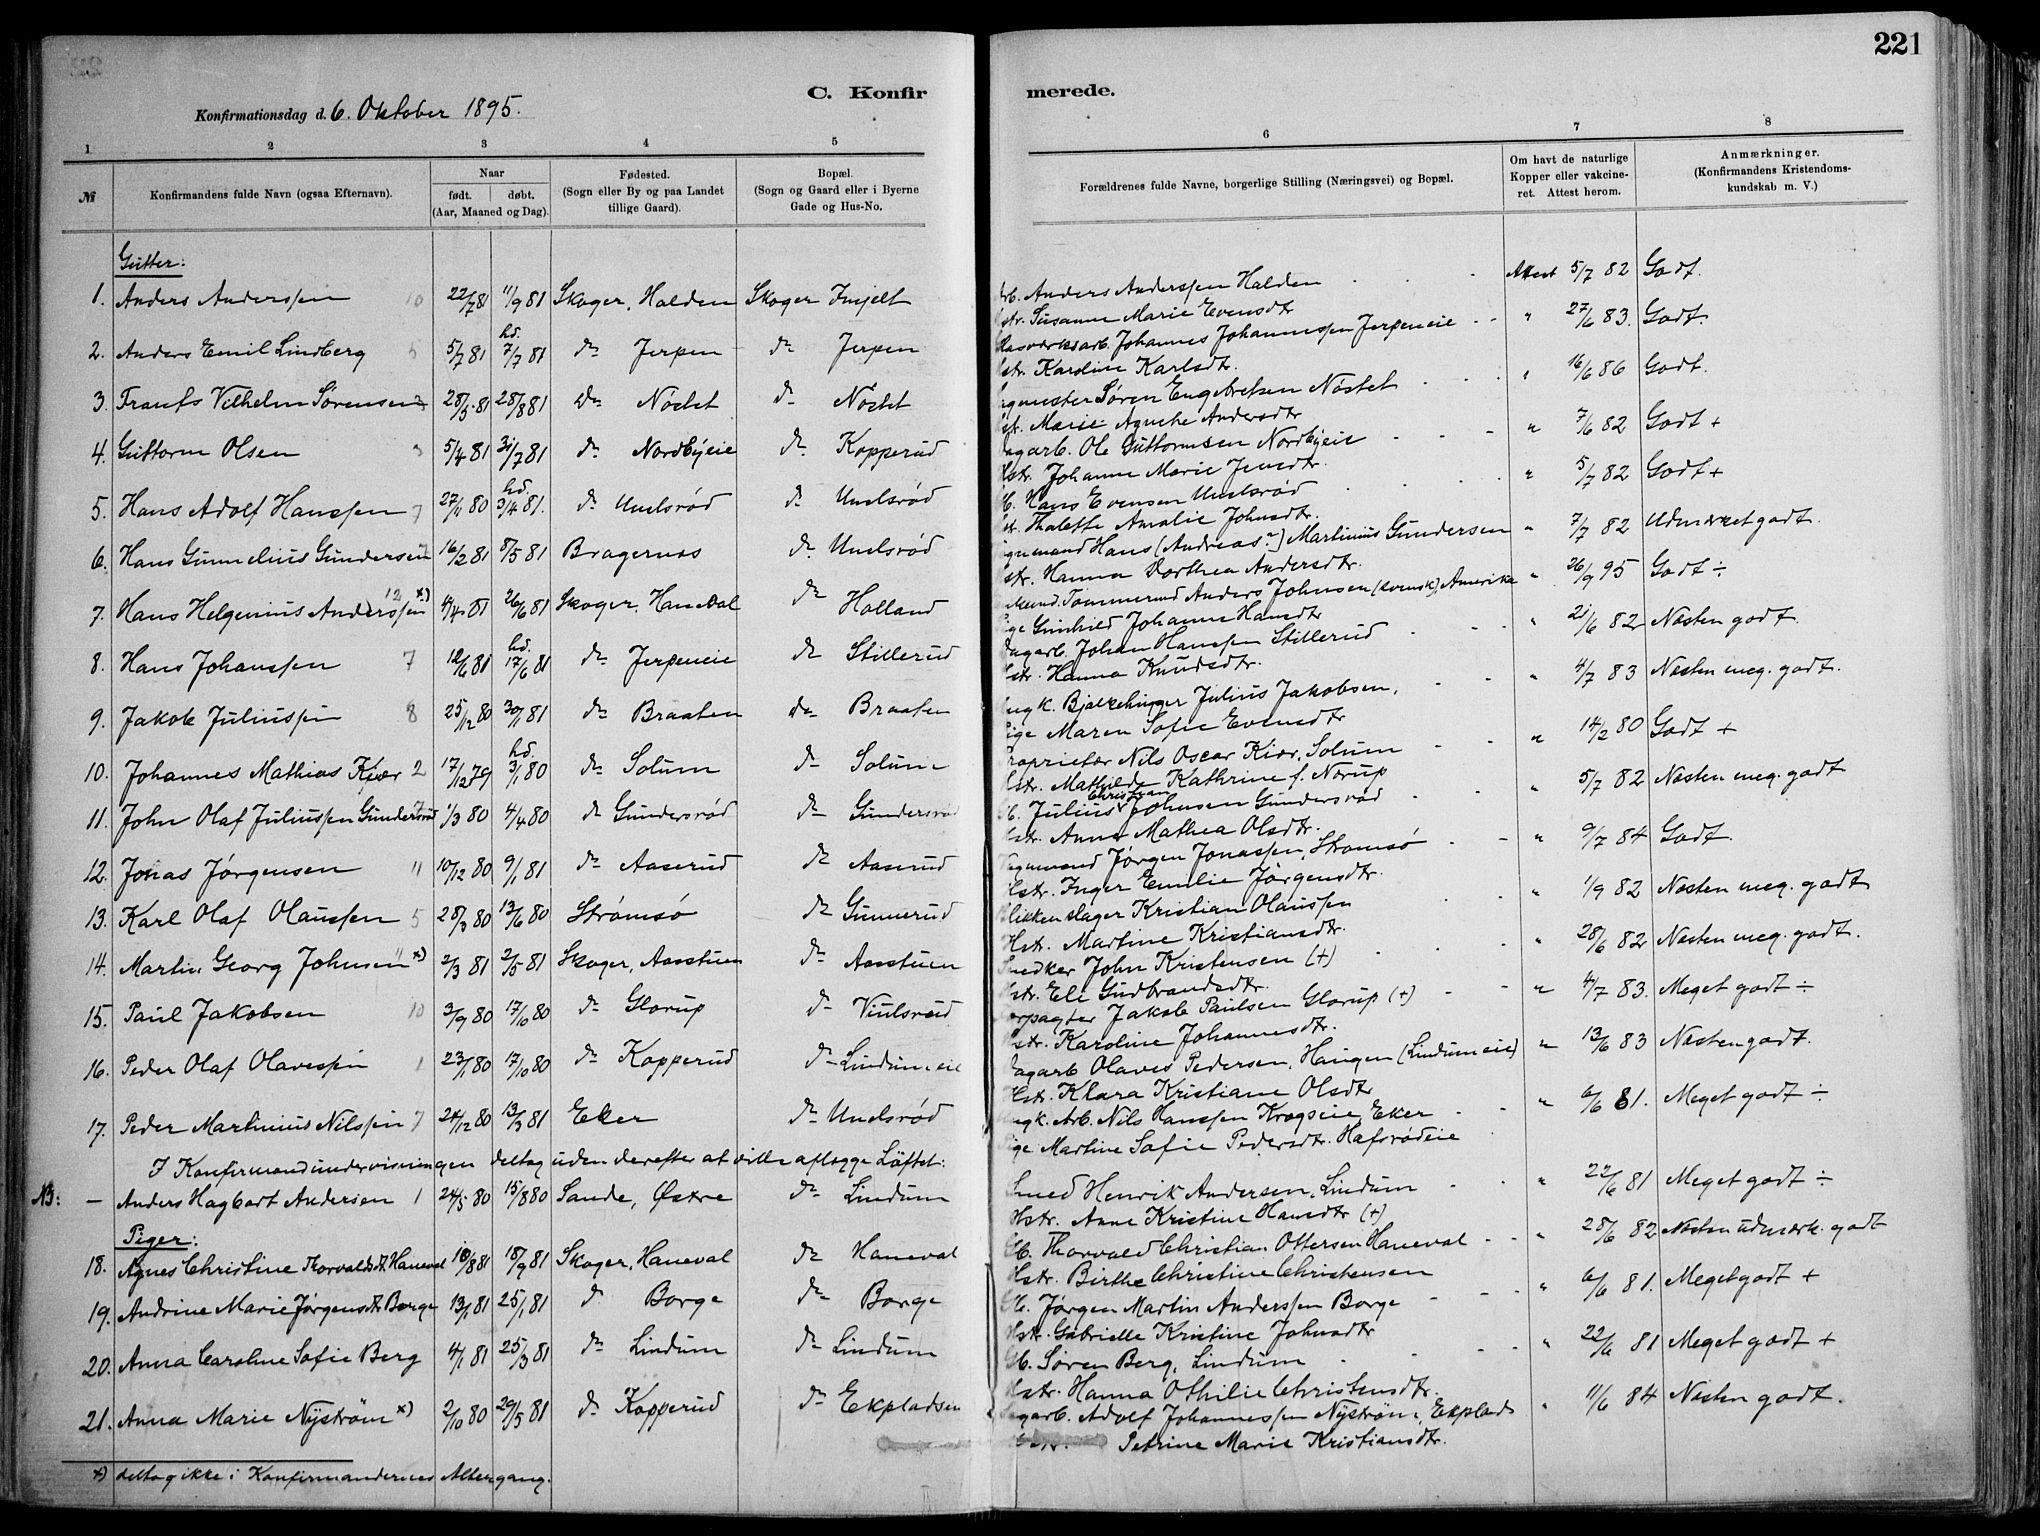 221
C. Konfirmerede.
Konfirmationsdag d. 6. Oktober 1895.
1 2 3 4 5 6 7 8
№ Konfirmandens fulde Navn (ogsaa Efternavn). Naar født. døbt. (Aar, Maaned og Dag). Fødested. (Sogn eller By og paa Landet tillige Gaard). Bopæl. (Sogn og Gaard eller i Byerne Gade og Hus-No. Forældrenes fulde Navne, borgerlige Stilling (Næringsvei) og Bopæl. Om havt de naturlige Kopper eller vakcineret. Attest herom. Anmærkninger. (Konfirmandens Kristendomskundskab m. V.)
Gutter:
1. Anders Anderssen 10 22/7 81 11/9 81 Skoger, Halden Skoger Imjelt Anders Anderssen Halden Attest 5/7 82 Godt.
Susanne Marie Evensdtr
2. Anders Emil Lindberg 5 5/7 81 hd. 7/7 81 do Jerpen do Jerpen Johannes Johannessen Jerpeneie " 27/6 83. Godt.
Karoline Karlsdtr.
3. Frants Vilhelm Sørensen 28/5 81 28/8 81 do Nöstet do Nöstet Søren Engebretsen Nöstet " 16/6 86 Godt.
Marie Agnethe Andersdtr
4. Guttorm Olsen 3 5/4 81 31/7 81 do Nordbyeie do Kopperud Ole Guttormsen Nordbyeie " 7/6 82 Godt +
Johanne Marie Jensdtr.
5. Hans Adolf Hanssen 7 27/11 80 hd. 3/4 81. do Unelsrød do Unelsrød Hans Evensen Unelsrød " 5/7 82 Godt +
Thalette Amalie Johnsdtr.
6. Hans Gunnelius Gundersen 7 16/2 81 8/5 81 Bragernæs do Unelsrød Hans (Andreas?) Martinius Gundersen " 7/7 82 Udmærket godt.
Hanna Dorthea Andersdtr.
7. Hans Helgenius Anderssen 12 x) 4/4 81 26/6 81 Skoger, Hanedal do Holland Tømmermand Anders Johnsen (svensk), Amerika " 26/9 95 Godt ÷
Gunhild Johanne Hansdtr
8. Hans Johanssen 7 12/6 81 hd. 17/6 81 do Jerpeneie do Stillerud Dagarb. Johan Hanssen Stillerud " 21/6 82 Næsten godt.
Hanna Knudsdtr.
9. Jakob Juliussen 8 25/12 80 30/1 81 do Braaten do Braaten Ungk. Bjælkehugger Julius Jakobsen, " 4/7 83 Næsten meg. godt.
Pige Maren Sofie Evensdtr
10. Johannes Mathias Kiær 2 17/12 79 hd. 3/1 80 do Solum do Solum Proprietær Nils Oscar Kiær, Solum " 14/2 80 Godt +
Hstr. Mathilde Kathrine f. Nerup
11. John Olaf Juliussen Gundersrød 1/3 80 4/4 80 do Gundersrød do Gundersrød Julius Christian Johnsen Gundersrød " 5/7 82 Næsten meg. godt
Anne Mathea Olsdtr.
12. Jonas Jørgensen 11 10/12 80 9/1 81 do Aaserud do Aaserud Jørgen Jonassen, Strømsø " 9/7 84 Godt.
Hstr. Inger Emilie Jørgensdtr.
13. Karl Olaf Olaussen 5 28/3 80 13/6 80 Strømsø do Gunnerud Blikkenslager Kristian Olaussen " 1/9 82 Næsten meg. godt
Hstr. Martine Kristiansdtr.
14. Martin Georg Johnsen 11 x) 2/3 81 2/5 81 Skoger, Aasstuen do Aasstuen Snedker John Kristensen (+) " 28/6 82 Næsten meg. godt.
Hstr. Eli Gudbrandsdtr.
15. Paul Jakobsen 10 3/9 80 17/10 80 do Glorup do Viulsrød Forpagter Jakob Paulsen Glorup (+) " 4/7 83. Meget godt ÷
Hstr. Karoline Johannesdtr.
16. Peder Olaf Olavessen 1 23/1 80 17/10 80 do Kopperud do Lindumeie Dagarb Olaves Pedersen, Haugen (Lindumeie) " 13/6 83 Næsten godt.
Hstr. Klara Kristiane Olsdtr
17. Peder Martinius Nilssen 7 24/12 80 13/3 81 Eker do Unelsrød Ungk. Arb. Nils Hanssen Krogseie, Eker " 6/6 81. Meget godt ÷
Pige Martine Sofie Pedersdtr. Hafsrødeie
I Konfirmandundervisningen deltog uden derefter at ville aflægge Löftet:
NB: — Anders Hagbart Andersen 1 24/5 80 15/8 80 Sande, Østre do Lindum Smed Henrik Andersen, Lindum " 22/6 81 Meget godt ÷
Hstr. Anne Kristine Hansdtr (+)
Piger:
18. Agnes Christine Thorvaldsdtr Haneval 10/8 81 18/9 81 Skoger, Haneval do Haneval Gb. Thorvald Christian Ottersen Haneval " 28/6 82 Næsten udmærk. godt
Hstr. Birthe Christine Christensen
19. Andrine Marie Jørgensdtr Borge 13/1 81 25/1 81 do Borge do Borge Gb. Jørgen Martin Anderssen Borge " 6/6 81. Meget godt +
Hstr. Gabrielle Kristine Johnsdtr
20. Anna Caroline Sofie Berg 4/1 81 25/3 81 do Lindum do Lindum Gb. Søren Berg, Lindum " 22/6 81 Meget godt +
Hstr. Hanna Othilie Christensdtr.
21. Anna Marie Nyström x) 2/10 80 29/5 81 do Kopperud do Ekpladsen Dagarb. Adolf Johannessen Nyström, Ekplads " 11/6 84 Næsten godt.
Petrine Marie Kristiansdtr.
x) deltog ikke i Konfirmandernes Altergang.